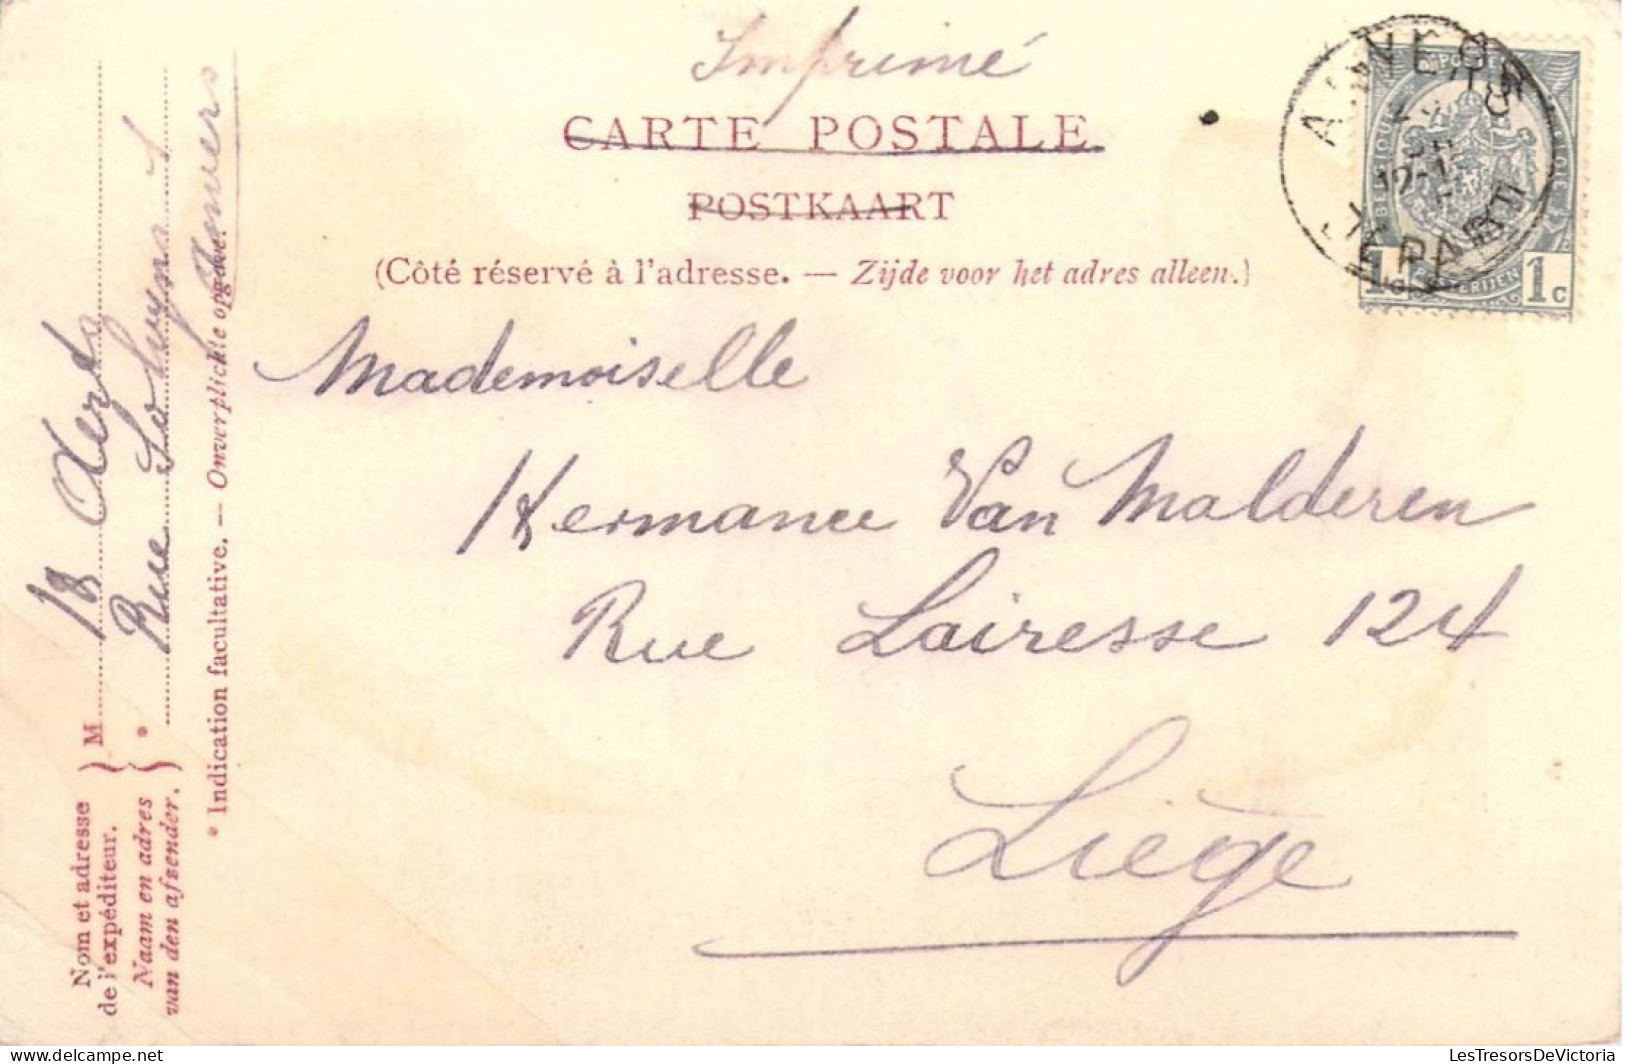 Imprimé
CARTE POSTALE
POSTKAART
(Côté réservé à l'adresse. — Zijde voor het adres alleen.)
Mademoiselle
Hermance Van Malderen
Rue Lairesse 124
Liège
ANVERS
DEPART
1c 1c
Nom et adresse
de l'expéditeur.
Naam en adres
van den afzender.
M 18 Aerts
* Rue
Anvers
* Indication facultative. — Onverplichte opgave.
LesTresorsDeVictoria
delcampe.net
LesTresorsDeVictoria